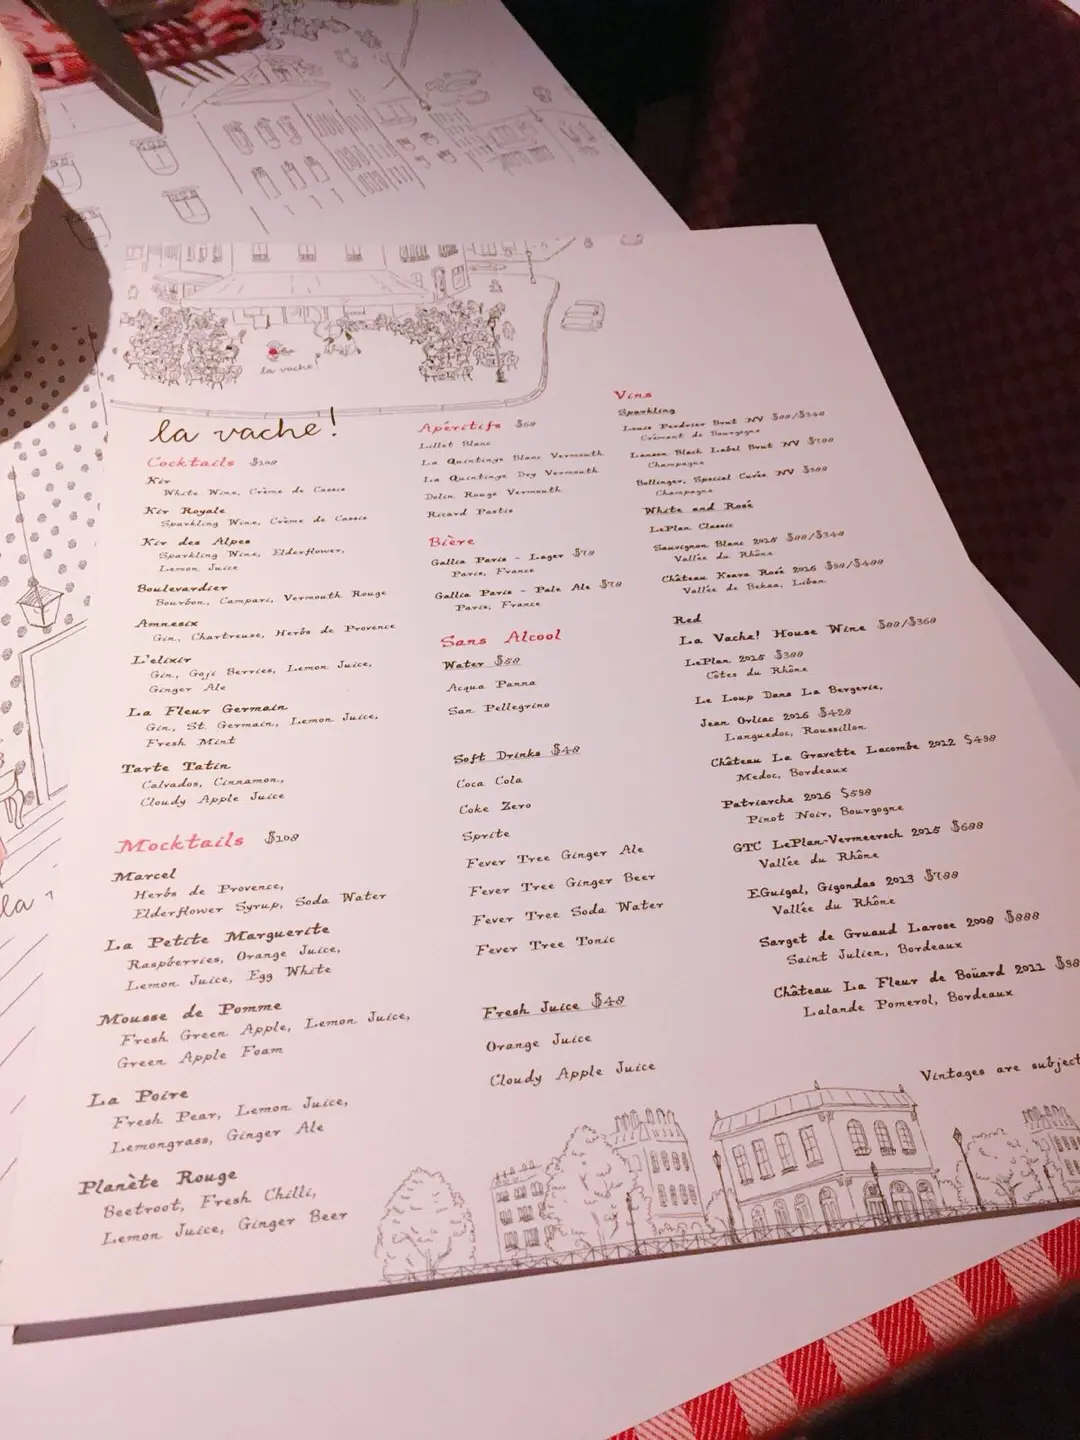 la vache!
la vache!
Cocktails
Kir
White Wine, Crème de Cassis
Kir Royale
Sparkling Wine, Crème de Cassis
Kir des Alpes
Sparkling Wine, Elderflower,
Lemon Juice
Boulevardier
Bourbon, Campari, Vermouth Rouge
Amnesix
Gin, Chartreuse, Herbs de Provence
L'elixir
Gin, Goji Berries, Lemon Juice,
Ginger Ale
La Fleur Germain
Gin, St. Germain, Lemon Juice,
Fresh Mint
Tarte Tatin
Calvados, Cinnamon,
Cloudy Apple Juice
Mocktails $108
Marcel
Herbs de Provence,
Elderflower Syrup, Soda Water
La Petite Marguerite
Raspberries, Orange Juice,
Lemon Juice, Egg White
Mousse de Pomme
Fresh Green Apple, Lemon Juice,
Green Apple Foam
La Poire
Fresh Pear, Lemon Juice,
Lemongrass, Ginger Ale
Planète Rouge
Beetroot, Fresh Chilli,
Lemon Juice, Ginger Beer
Apéritifs
Lillet Blanc
La Quintinye Blanc Vermouth
La Quintinye Dry Vermouth
Dolin Rouge Vermouth
Ricard Pastis
Bière
Gallia Paris - Lager $78
Paris, France
Gallia Paris - Pale Ale $78
Paris, France
Sans Alcool
Water $58
Acqua Panna
San Pellegrino
Soft Drinks $48
Coca Cola
Coke Zero
Sprite
Fever Tree Ginger Ale
Fever Tree Ginger Beer
Fever Tree Soda Water
Fever Tree Tonic
Fresh Juice $48
Orange Juice
Cloudy Apple Juice
Vins
Sparkling
Louis Perdrier Brut NV
Crémant de Bourgogne
Lanson Black Label Brut NV
Champagne
Bollinger, Special Cuvée NV
Champagne
White and Rosé
LePlan Classic
Sauvignon Blanc 2015
Vallée du Rhône
Château Ksara Rosé 2016
Vallée de Bekaa, Liban
Red
La Vache! House Wine
LePlan 2015 $388
Côtes du Rhône
Le Loup Dans La Bergerie,
Jean Orliac 2016 $428
Languedoc, Roussillon
Château La Gravette Lacombe 2012 $498
Medoc, Bordeaux
Patriarche 2016 $598
Pinot Noir, Bourgogne
GTC LePlan-Vermeersch 2015 $688
Vallée du Rhône
EGuigal, Gigondas 2013 $788
Vallée du Rhône
Sarget de Gruaud Larose 2008 $888
Saint Julien, Bordeaux
Château La Fleur de Boüard 2011
Lalande Pomerol, Bordeaux
Vintages are subject
la